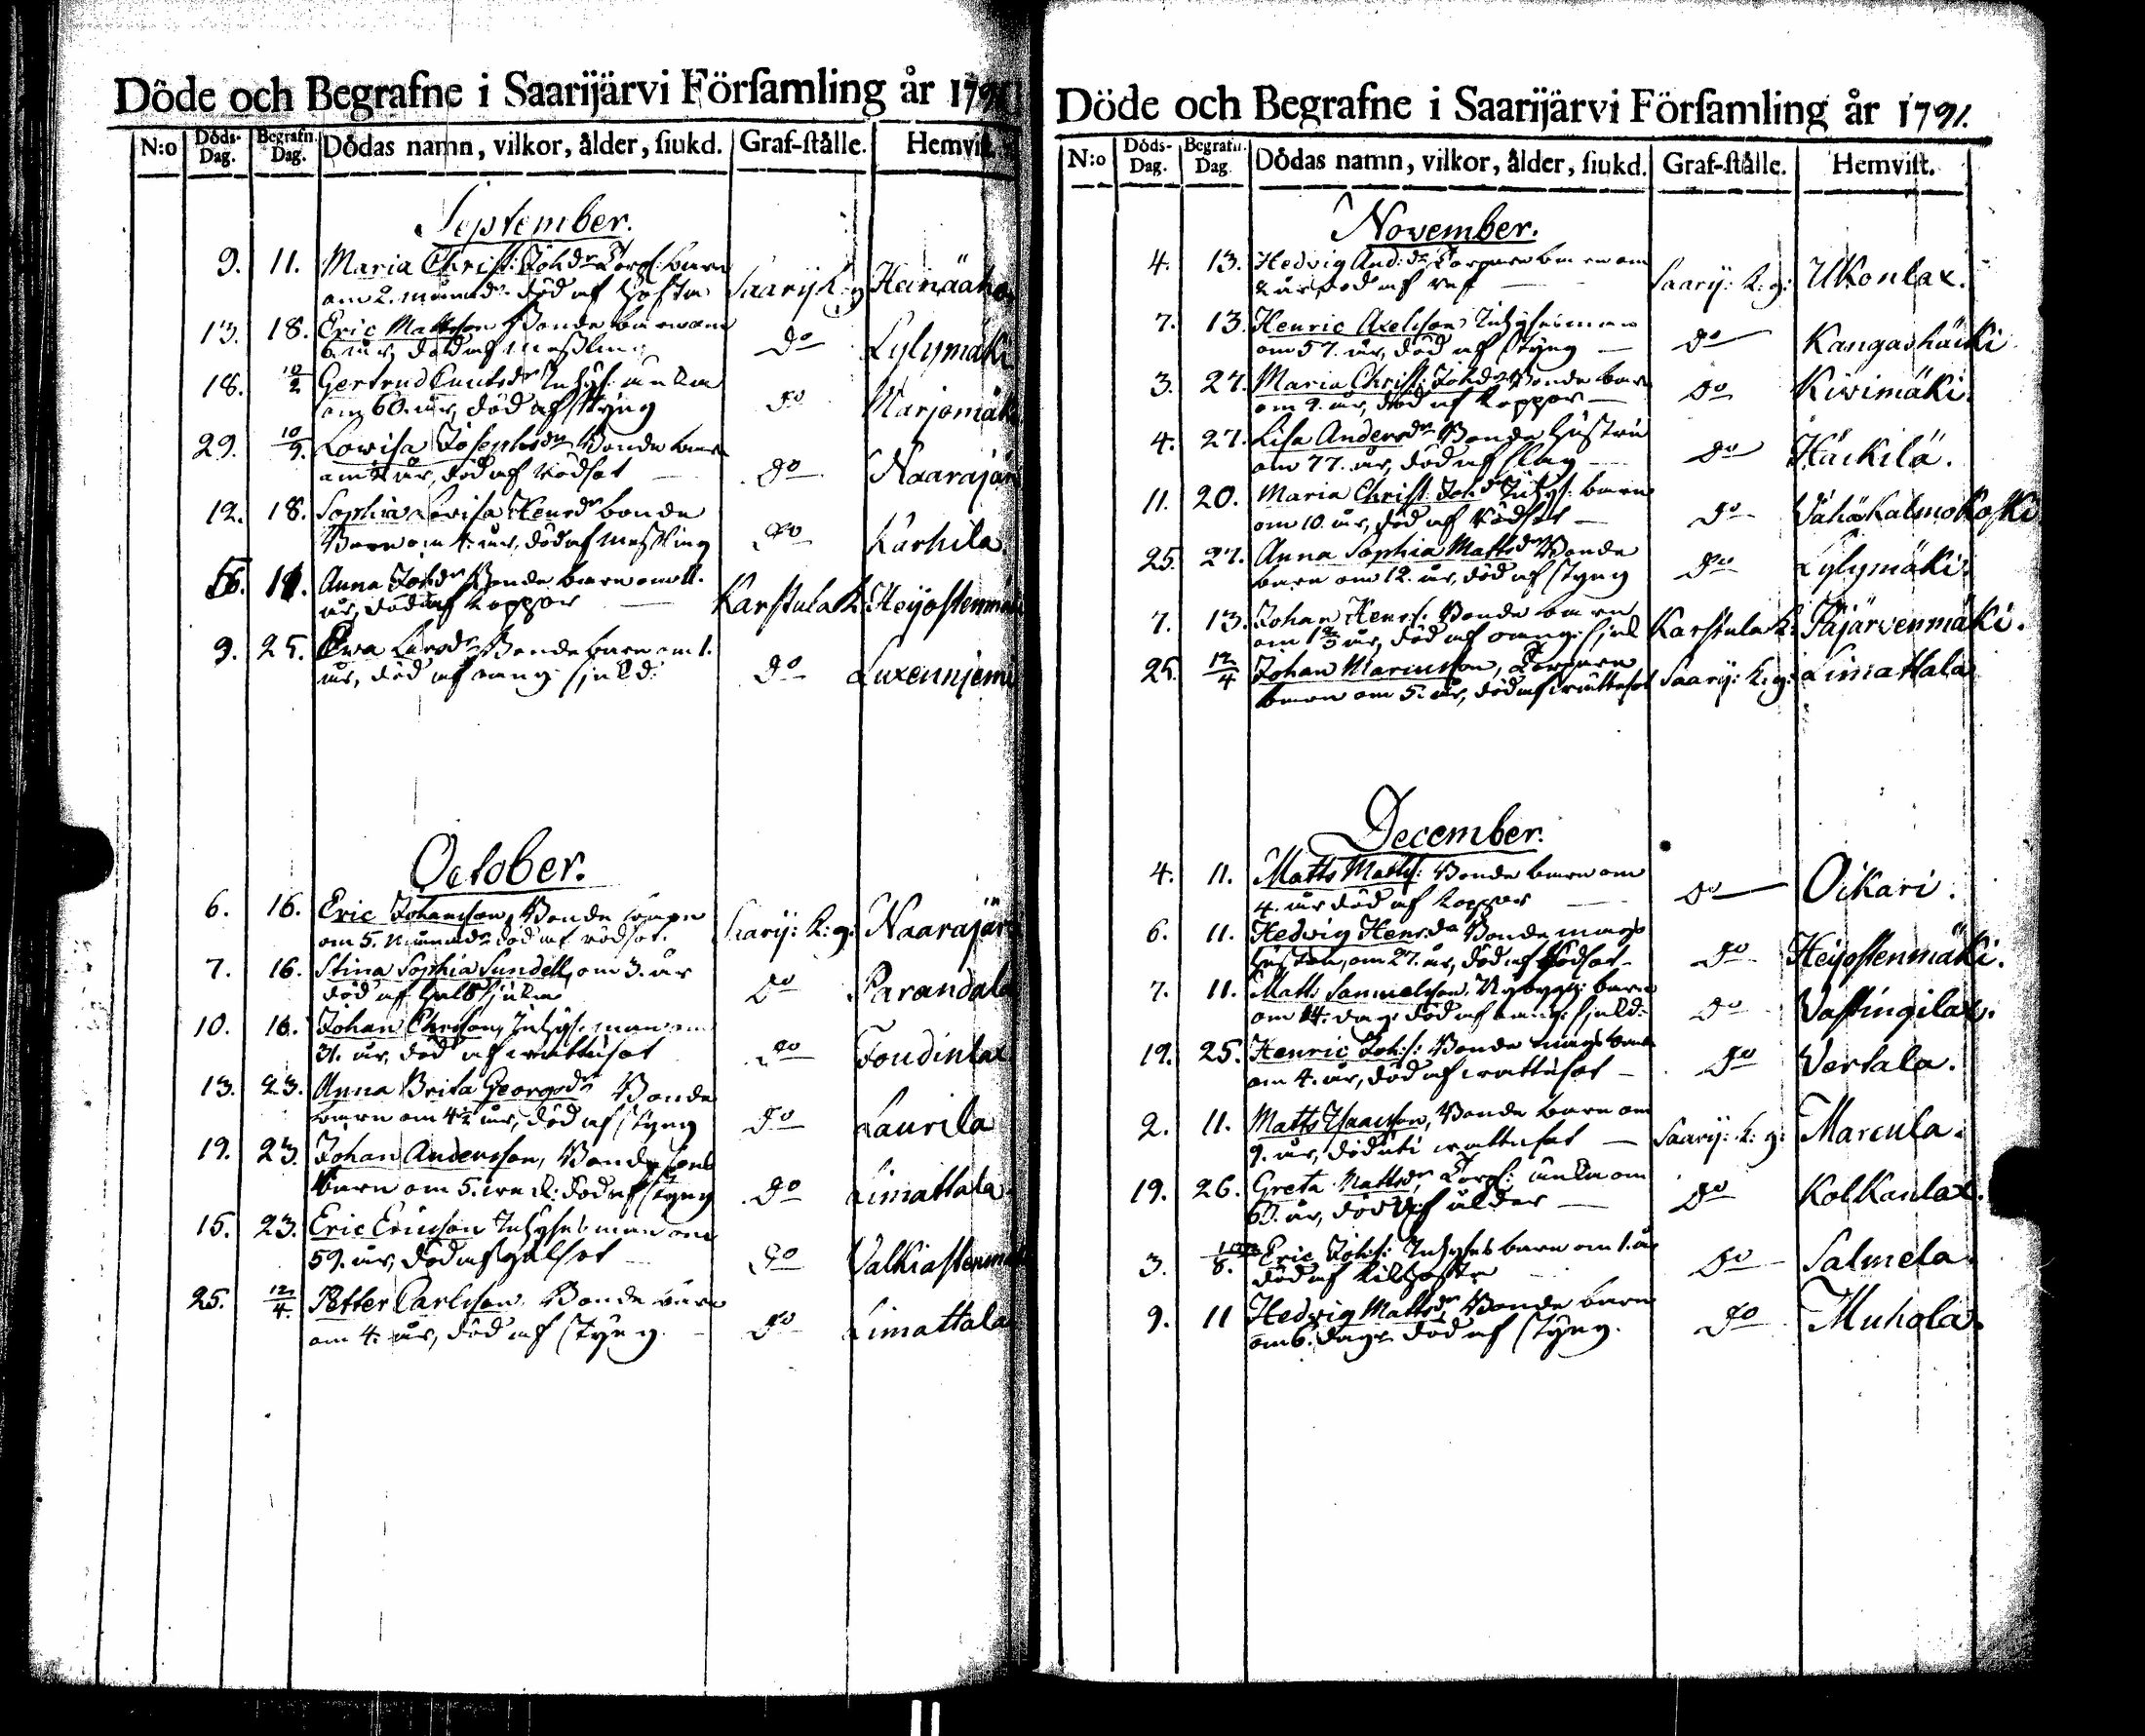 Döde och Begrafne i Saarijärvi Församling år 1791
N:o Döds-Dag. Begrafn. Dag. Dödas namn, vilkor, ålder, siukd. Graf-ställe. Hemvist.
September.
9. 11. Maria Christ: Joh:dr Torp: barn
om 2. månad: död af hosta Saarij: K: g Heinäaho
13. 18. Eric Mattsson Bonde barn om
6. år, död af Messling do Lylymäki
18. 10/2 Gertrud Cnutsdr Inhys: enka
om 60. år, död af styng do Marjomäk
29. 10/9. Lovisa Josephsdr Bonde barn
om år, död af Rödsot do Naarajär
12. 18. Sophia Lovisa Henrdr bonde
Barn om 4. år, död af Messling do Karhila
18. Anna Joh:dr Bonde barn om 11.
år, död af koppor Karstula K. Heijostenmäki
9. 25. Ewa Larsdr Bonde barn om 1.
år, död af oang: sjukd: do Luxenniemi
October.
6. 16. Eric Johansson, Bonde
om 5. månader död af rödsot. Saarij: K: g: Naarajär
7. 16. Stina Sophia Sundell, om 3. år
död af halssjuka do Parandala
10. 16. Johan Inhys: man om
31. år, död af wattusot do Foudinlax
13. 23. Anna Brita Georgsdr Bonde
barn om 4½ år, död af styng do Laurila
19. 23. Johan Andersson, Bonde sons
barn om 5. weck: död af styng do Limattala
15. 23. Eric Ericsson Inhyses man om
59. år, död af do Valkiastenmäki
25. 12/4. Petter Carlsson, Bonde barn
om 4. år, död af styng. do Limattala
Döde och Begrafne i Saarijärvi Församling år 1791.
N:o Döds-Dag. Begrafn. Dag. Dödas namn, vilkor, ålder, siukd. Graf-ställe. Hemvist.
November.
4. 13. Hedvig And:dr Torpare barn om
2 år, död af ref Saarij: K: g: Ukonlax.
7. 13. Henric Axelsson Inhyses man
om 57. år, död af styng do Kangashäcki
3. 27. Maria Christ: Joh:dr Bonde barn
om 9. år, död af koppor do Kivimäki
4. 27. Lisa Andersdr Bonde hustru
om 77. år, död af slag do Häckilä.
11. 20. Maria Christ: Joh:dr Inhys: barn
om 10. år, död af Rödsot do Vähäkalmokoski
25. 27. Anna Sophia Mattsdr Bonde
barn om 12. år, död af styng do Lylymäki.
7. 13. Johan Henrs: Bonde barn
om år, död af oang: sjukd Karstula K: Pajärvenmäki.
25. 12/4 Johan Marcusson, Torpare
barn om 5. år, död af wattusot Saarij: K: g: Limattala
December.
4. 11. Matts Matts: Bonde barn om
4. år död af koppor do Oikari.
6. 11. Hedvig Henrsdr Bonde mågs
hustru, om 27. år, död af Rödsot do Heijostenmäki.
7. 11. Matts Samuelsson, Nybygg: barn
om 14. dag: död af oang: sjukd: do Vastingilax.
19. 25. Henric Joh:s: Bonde mågs barn
om 4. år, död af wattusot do Vertala.
2. 11. Matts Isaacsson, Bonde barn om
9. år, död uti wattusot Saarij: K: g: Marcula.
19. 26. Greta Mattsdr, Torp: enka om
60. år, död af ålder do Kolkanlax.
3. 8. Eric Joh:s: Inhyses barn om 1. år
död af kikhosta do Salmela.
9. 11 Hedvig Mattsdr Bonde barn
om 6. dagar död af styng. do Muhola.